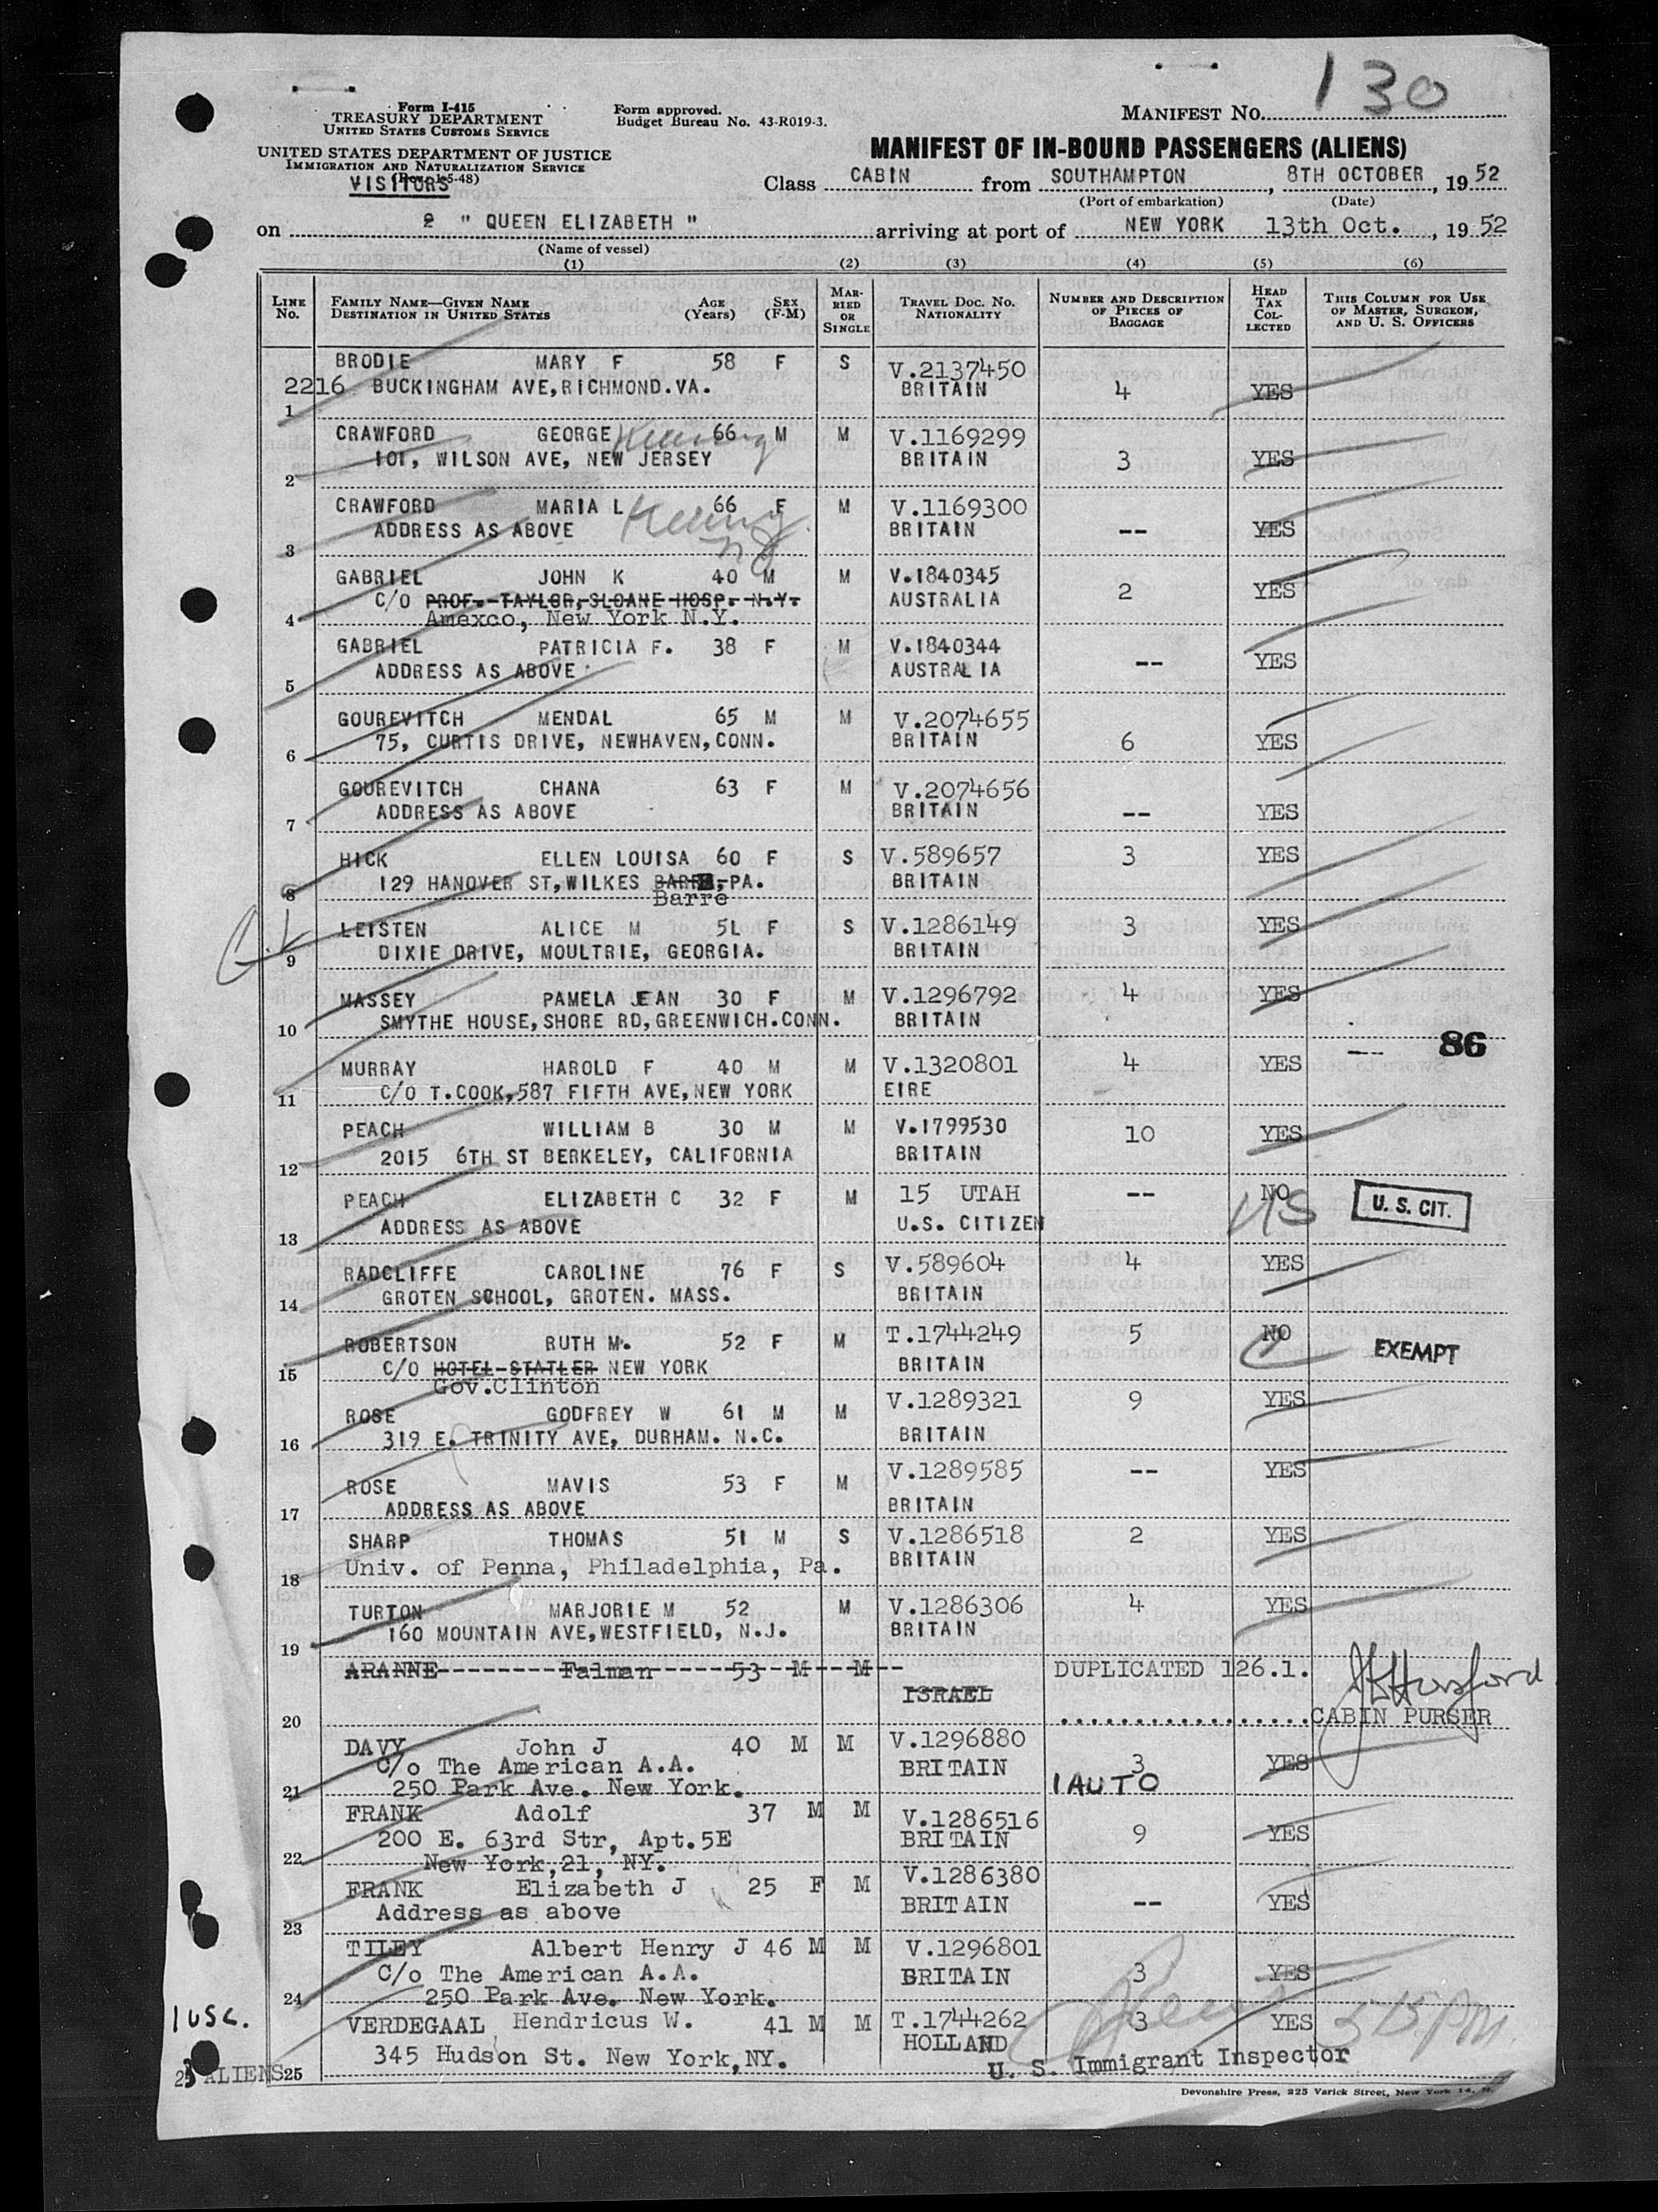 130
Form I-415
TREASURY DEPARTMENT
UNITED STATES CUSTOMS SERVICE
Form approved.
Budget Bureau No. 43-R019-3.
MANIFEST No.
UNITED STATES DEPARTMENT OF JUSTICE
IMMIGRATION AND NATURALIZATION SERVICE
(Rev. 1-5-48)
VISITORS
MANIFEST OF IN-BOUND PASSENGERS (ALIENS)
Class CABIN from SOUTHAMPTON, 8TH OCTOBER, 1952
(Port of embarkation) (Date)
on 2 " QUEEN ELIZABETH " arriving at port of NEW YORK 13th Oct., 1952
(Name of vessel)
(1) (2) (3) (4) (5) (6)
LINE No. FAMILY NAME—GIVEN NAME DESTINATION IN UNITED STATES AGE (Years) SEX (F-M) MARRIED OR SINGLE TRAVEL DOC. NO. NATIONALITY NUMBER AND DESCRIPTION OF PIECES OF BAGGAGE HEAD TAX COLLECTED THIS COLUMN FOR USE OF MASTER, SURGEON, AND U. S. OFFICERS
BRODIE MARY F 58 F S V.2137450
2216 BUCKINGHAM AVE,RICHMOND.VA. BRITAIN 4 YES
1
CRAWFORD GEORGE Kearny 66 M M V.1169299
101, WILSON AVE, NEW JERSEY BRITAIN 3 YES
2
CRAWFORD MARIA L Kearny 66 F M V.1169300
ADDRESS AS ABOVE NJ BRITAIN -- YES
3
GABRIEL JOHN K 40 M M V.1840345
C/O PROF. TAYLOR, SLOANE HOSP. N.Y. AUSTRALIA 2 YES
4 Amexco, New York N.Y.
GABRIEL PATRICIA F. 38 F M V.1840344
ADDRESS AS ABOVE AUSTRALIA -- YES
5
GOUREVITCH MENDAL 65 M M V.2074655
75, CURTIS DRIVE, NEWHAVEN,CONN. BRITAIN 6 YES
6
GOUREVITCH CHANA 63 F M V.2074656
ADDRESS AS ABOVE BRITAIN -- YES
7
HICK ELLEN LOUISA 60 F S V.589657 3 YES
129 HANOVER ST,WILKES BARRE,PA. BRITAIN
8 Barre
LEISTEN ALICE M 5L F S V.1286149 3 YES
DIXIE DRIVE, MOULTRIE, GEORGIA. BRITAIN
9
MASSEY PAMELA JEAN 30 F M V.1296792 4 YES
SMYTHE HOUSE,SHORE RD,GREENWICH.CONN. BRITAIN
10
86
MURRAY HAROLD F 40 M M V.1320801 4 YES
C/O T.COOK,587 FIFTH AVE,NEW YORK EIRE
11
PEACH WILLIAM B 30 M M V.1799530 10 YES
2015 6TH ST BERKELEY, CALIFORNIA BRITAIN
12
PEACH ELIZABETH C 32 F M 15 UTAH -- NO US U. S. CIT.
ADDRESS AS ABOVE U.S. CITIZEN
13
RADCLIFFE CAROLINE 76 F S V.589604 4 YES
GROTEN SCHOOL, GROTEN. MASS. BRITAIN
14
ROBERTSON RUTH M. 52 F M T.1744249 5 NO EXEMPT
C/O HOTEL STATLER NEW YORK BRITAIN
15 Gov.Clinton
ROSE GODFREY W 61 M M V.1289321 9 YES
319 E. TRINITY AVE, DURHAM. N.C. BRITAIN
16
ROSE MAVIS 53 F M V.1289585 -- YES
ADDRESS AS ABOVE BRITAIN
17
SHARP THOMAS 51 M S V.1286518 2 YES
Univ. of Penna, Philadelphia, Pa. BRITAIN
18
TURTON MARJORIE M 52 M V.1286306 4 YES
160 MOUNTAIN AVE,WESTFIELD, N.J. BRITAIN
19
ARANNE Falman 53 M M DUPLICATED 126.1.
ISRAEL
20 CABIN PURSER
DAVY John J 40 M M V.1296880
C/o The American A.A. BRITAIN 3 YES
21 250 Park Ave. New York. 1 AUTO
FRANK Adolf 37 M M V.1286516
200 E. 63rd Str, Apt.5E BRITAIN 9 YES
22 New York,21, NY.
FRANK Elizabeth J 25 F M V.1286380
Address as above BRITAIN -- YES
23
TILEY Albert Henry J 46 M M V.1296801
C/o The American A.A. BRITAIN 3 YES
24 250 Park Ave. New York.
1 USC.
VERDEGAAL Hendricus W. 41 M M T.1744262 3 YES 515 PM.
345 Hudson St. New York,NY. HOLLAND
ALIENS 25 U. S. Immigrant Inspector
Devonshire Press, 225 Varick Street, New York 14,